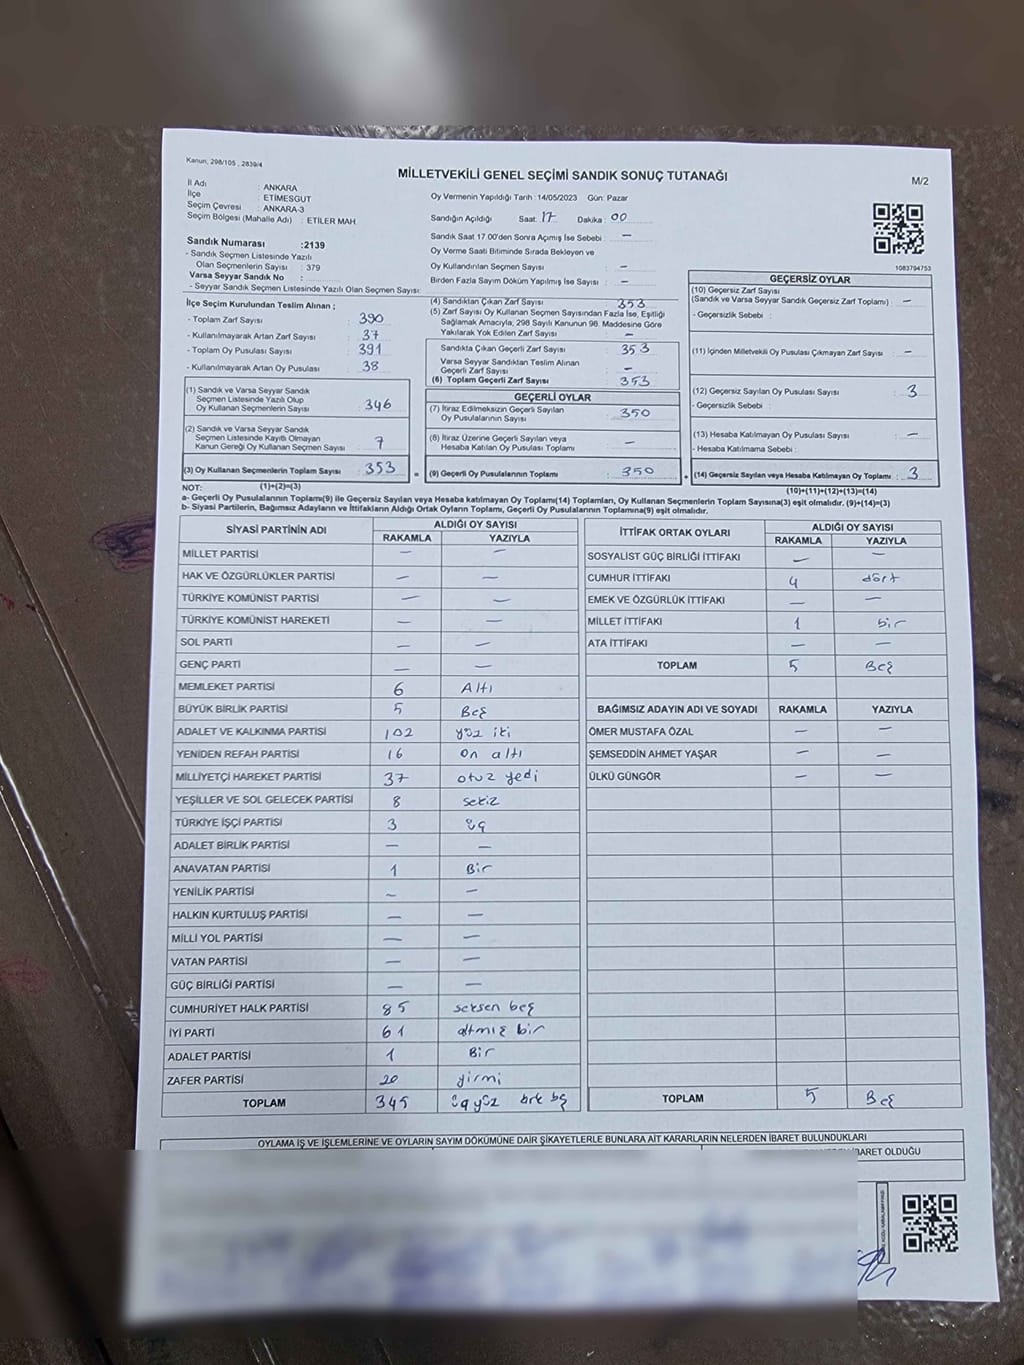 Kanun, 298/105 , 2839/4
MİLLETVEKİLİ GENEL SEÇİMİ SANDIK SONUÇ TUTANAĞI
M/2
İl Adı : ANKARA
İlçe : ETİMESGUT
Seçim Çevresi : ANKARA-3
Seçim Bölgesi (Mahalle Adı) : ETİLER MAH.
Sandık Numarası :2139
- Sandık Seçmen Listesinde Yazılı
Olan Seçmenlerin Sayısı : 379
Varsa Seyyar Sandık No :
- Seyyar Sandık Seçmen Listesinde Yazılı Olan Seçmen Sayısı:
Oy Vermenin Yapıldığı Tarih : 14/05/2023 Gün: Pazar
Sandığın Açıldığı Saat: 17 Dakika: 00
Sandık Saat 17:00'den Sonra Açımış İse Sebebi : –
Oy Verme Saati Bitiminde Sırada Bekleyen ve
Oy Kullandırılan Seçmen Sayısı : –
Birden Fazla Sayım Döküm Yapılmış İse Sayısı : –
1083794753
İlçe Seçim Kurulundan Teslim Alınan ;
- Toplam Zarf Sayısı : 390
- Kullanılmayarak Artan Zarf Sayısı : 37
- Toplam Oy Pusulası Sayısı : 391
- Kullanılmayarak Artan Oy Pusulası : 38
(1) Sandık ve Varsa Seyyar Sandık
Seçmen Listesinde Yazılı Olup
Oy Kullanan Seçmenlerin Sayısı : 346
(2) Sandık ve Varsa Seyyar Sandık
Seçmen Listesinde Kayıtlı Olmayan
Kanun Gereği Oy Kullanan Seçmen Sayısı : 7
(3) Oy Kullanan Seçmenlerin Toplam Sayısı : 353
(1)+(2)=(3)
(4) Sandıktan Çıkan Zarf Sayısı : 353
(5) Zarf Sayısı Oy Kullanan Seçmen Sayısından Fazla İse, Eşitliği
Sağlamak Amacıyla, 298 Sayılı Kanunun 98. Maddesine Göre
Yakılarak Yok Edilen Zarf Sayısı : –
Sandıkta Çıkan Geçerli Zarf Sayısı : 353
Varsa Seyyar Sandıktan Teslim Alınan
Geçerli Zarf Sayısı : –
(6) Toplam Geçerli Zarf Sayısı : 353
GEÇERLİ OYLAR
(7) İtiraz Edilmeksizin Geçerli Sayılan
Oy Pusulalarının Sayısı : 350
(8) İtiraz Üzerine Geçerli Sayılan veya
Hesaba Katılan Oy Pusulası Toplamı : –
(9) Geçerli Oy Pusulalarının Toplamı : 350
GEÇERSİZ OYLAR
(10) Geçersiz Zarf Sayısı
(Sandık ve Varsa Seyyar Sandık Geçersiz Zarf Toplamı) : –
- Geçersizlik Sebebi :
(11) İçinden Milletvekili Oy Pusulası Çıkmayan Zarf Sayısı : –
(12) Geçersiz Sayılan Oy Pusulası Sayısı : 3
- Geçersizlik Sebebi :
(13) Hesaba Katılmayan Oy Pusulası Sayısı : –
- Hesaba Katılmama Sebebi :
(14) Geçersiz Sayılan veya Hesaba Katılmayan Oy Toplamı : 3
(10)+(11)+(12)+(13)=(14)
NOT:
a- Geçerli Oy Pusulalarının Toplamı(9) ile Geçersiz Sayılan veya Hesaba katılmayan Oy Toplamı(14) Toplamları, Oy Kullanan Seçmenlerin Toplam Sayısına(3) eşit olmalıdır. (9)+(14)=(3)
b- Siyasi Partilerin, Bağımsız Adayların ve İttifakların Aldığı Ortak Oyların Toplamı, Geçerli Oy Pusulalarının Toplamına(9) eşit olmalıdır.
SİYASİ PARTİNİN ADI ALDIĞI OY SAYISI
RAKAMLA YAZIYLA
MİLLET PARTİSİ – –
HAK VE ÖZGÜRLÜKLER PARTİSİ – –
TÜRKİYE KOMÜNİST PARTİSİ – –
TÜRKİYE KOMÜNİST HAREKETİ – –
SOL PARTİ – –
GENÇ PARTİ – –
MEMLEKET PARTİSİ 6 Altı
BÜYÜK BİRLİK PARTİSİ 5 Beş
ADALET VE KALKINMA PARTİSİ 102 yüz iki
YENİDEN REFAH PARTİSİ 16 on altı
MİLLİYETÇİ HAREKET PARTİSİ 37 otuz yedi
YEŞİLLER VE SOL GELECEK PARTİSİ 8 sekiz
TÜRKİYE İŞÇİ PARTİSİ 3 üç
ADALET BİRLİK PARTİSİ – –
ANAVATAN PARTİSİ 1 Bir
YENİLİK PARTİSİ – –
HALKIN KURTULUŞ PARTİSİ – –
MİLLİ YOL PARTİSİ – –
VATAN PARTİSİ – –
GÜÇ BİRLİĞİ PARTİSİ – –
CUMHURİYET HALK PARTİSİ 85 seksen beş
İYİ PARTİ 61 altmış bir
ADALET PARTİSİ 1 Bir
ZAFER PARTİSİ 20 yirmi
TOPLAM 345 üçyüz kırk beş
İTTİFAK ORTAK OYLARI ALDIĞI OY SAYISI
RAKAMLA YAZIYLA
SOSYALİST GÜÇ BİRLİĞİ İTTİFAKI – –
CUMHUR İTTİFAKI 4 dört
EMEK VE ÖZGÜRLÜK İTTİFAKI – –
MİLLET İTTİFAKI 1 bir
ATA İTTİFAKI – –
TOPLAM 5 Beş
BAĞIMSIZ ADAYIN ADI VE SOYADI RAKAMLA YAZIYLA
ÖMER MUSTAFA ÖZAL – –
ŞEMSEDDİN AHMET YAŞAR – –
ÜLKÜ GÜNGÖR – –
TOPLAM 5 Beş
OYLAMA İŞ VE İŞLEMLERİNE VE OYLARIN SAYIM DÖKÜMÜNE DAİR ŞİKAYETLERLE BUNLARA AİT KARARLARIN NELERDEN İBARET BULUNDUKLARI
İBARET OLDUĞU